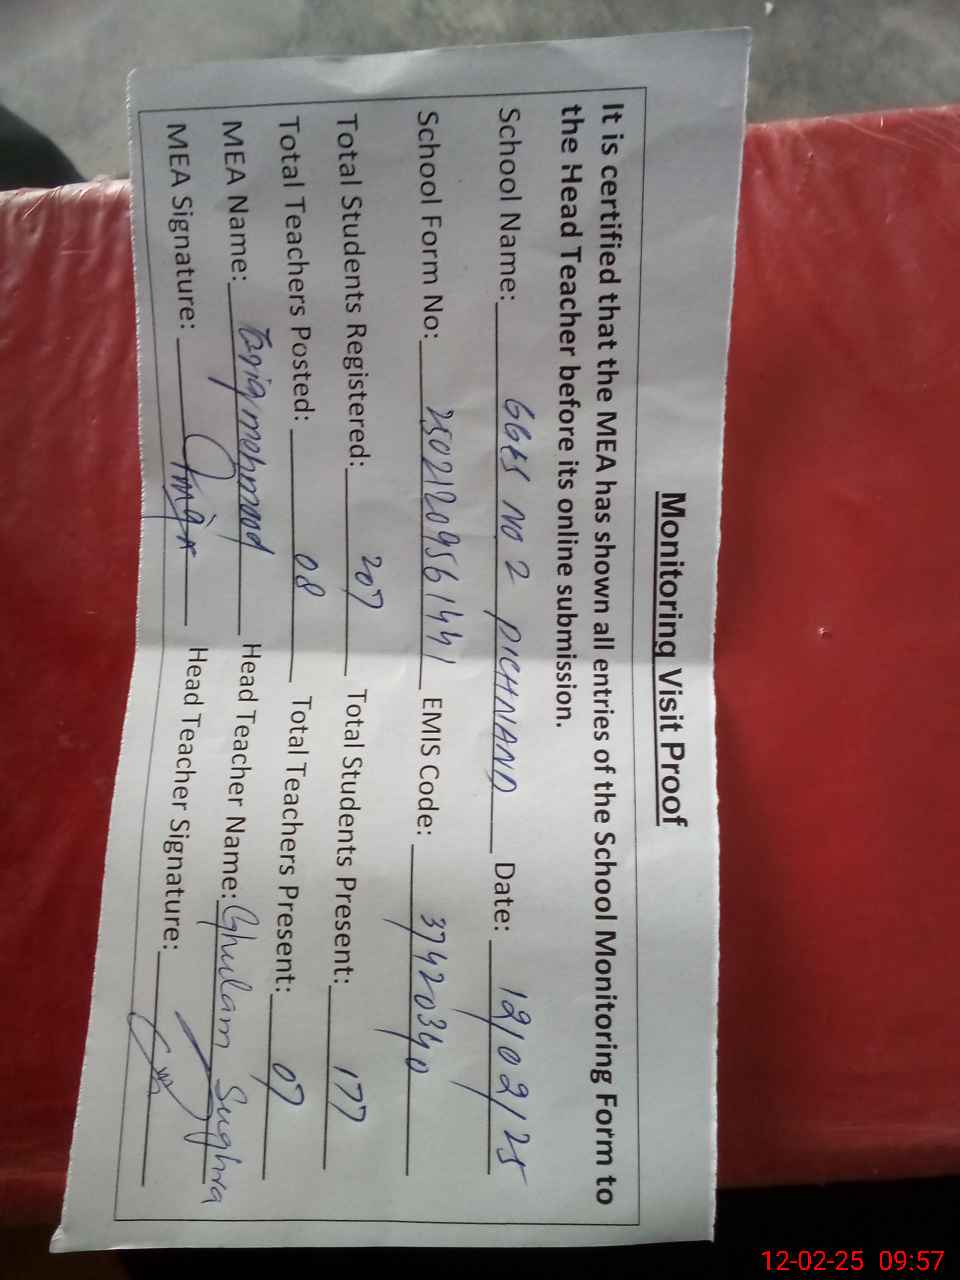 Monitoring Visit Proof
It is certified that the MEA has shown all entries of the School Monitoring Form to
the Head Teacher before its online submission.
School Name: GGES NO 2 PICHNAND Date: 12/02/25
School Form No: 25021209561441 EMIS Code: 37420340
Total Students Registered: 207 Total Students Present: 177
Total Teachers Posted: 08 Total Teachers Present: 07
MEA Name: Tariq mohmood Head Teacher Name: Ghulam Sughra
MEA Signature: Head Teacher Signature:
12-02-25 09:57